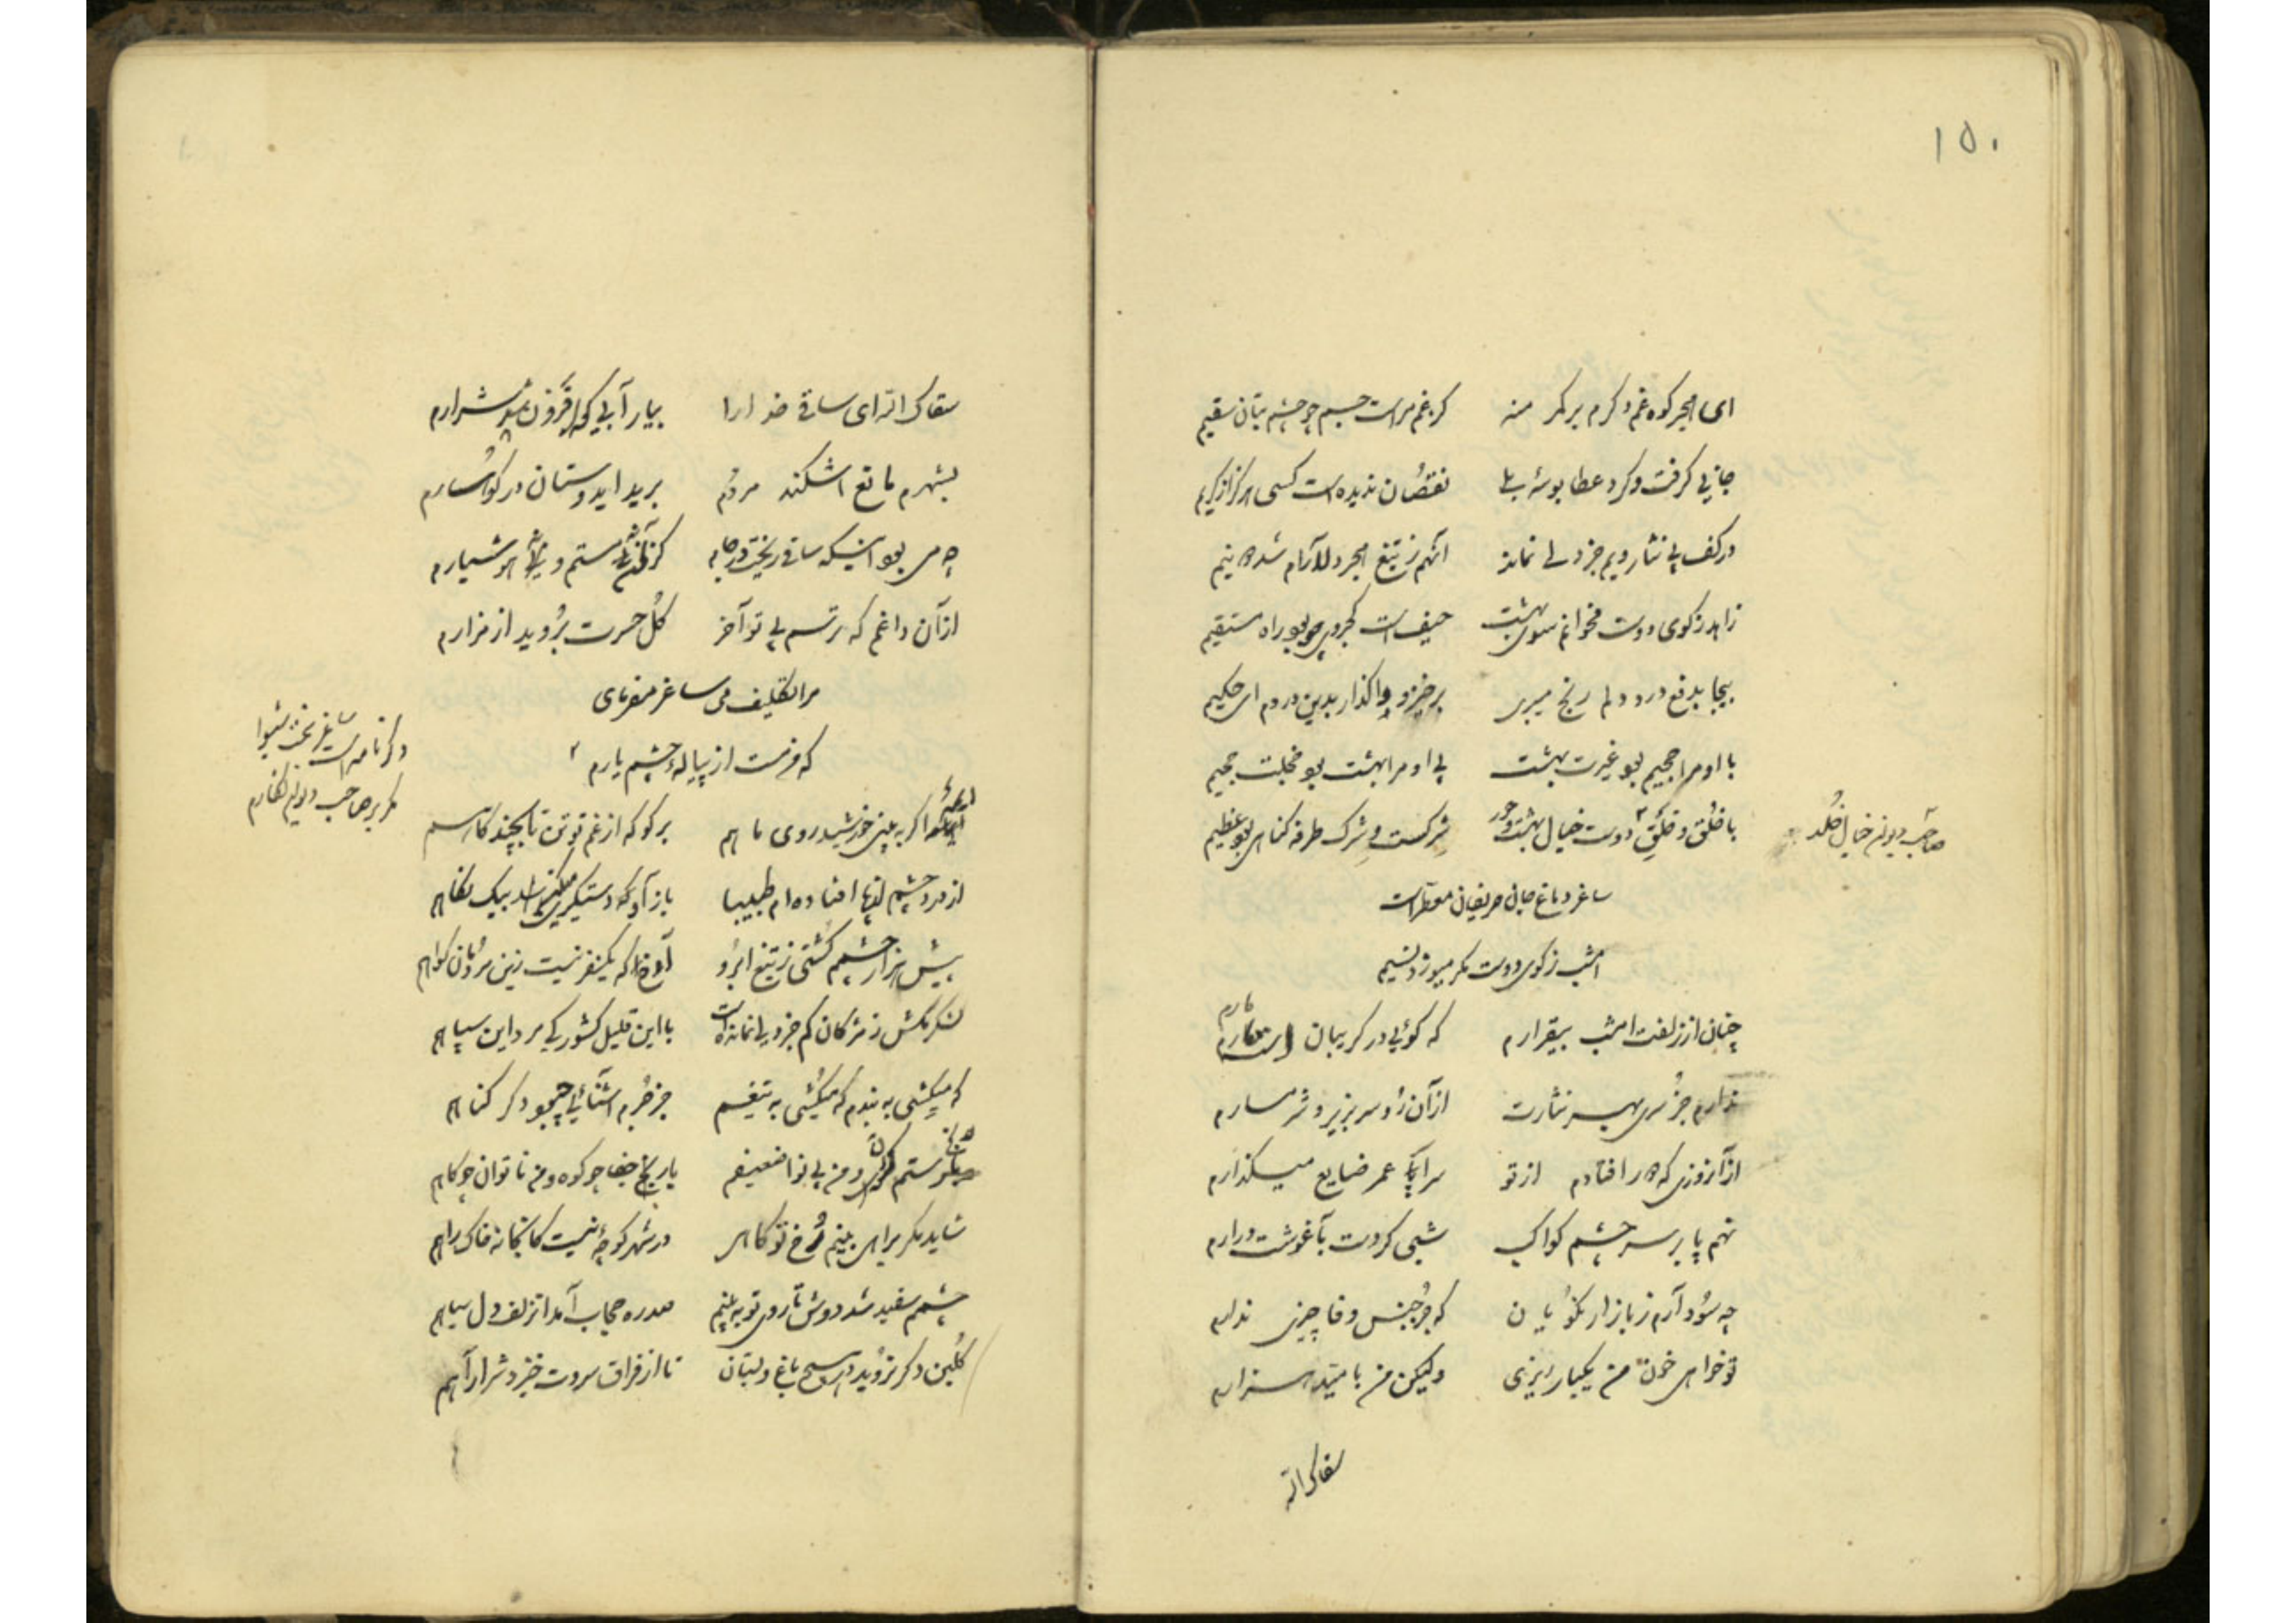 ۱۵۰
ای هجر کوه غم دگرم بر کمر منه کز غم مراست جسم چو چشم بتان سقیم
جانی گرفت و کرد عطا بوسهٔ بلی نقصان ندیده است کسی هرگز از کریم
در کف پی نثار ویم جز دلی نماند آنهم ز تیغ هجر دلارام شد دو نیم
زاهد ز کوی دوست مخوانم سوی بهشت حیف است کجروی چو بود راه مستقیم
بیجا بدفع درد دلم رنج میبری برخیز و واگذار بدین دردم ای حکیم
با او مرا جحیم بود غیرت بهشت بی او مرا بهشت بود خجلت جحیم
با خلق و خلق دوست خیال بهشت و حور شرکست و شرک طرفه گناهی بود عظیم
صاحب دیوان خیال خلد
ساغر دماغ جان حریفان معطر است
امشب ز کوی دوست مگر میوزد نسیم
چنان از زلفت امشب بیقرارم که گوئی در گریبان است مارم
ندارم جز سری بهر نثارت از آن رو سر بزیر و شرمسارم
از آنروزی که دور افتادم از تو سراپا عمر ضایع میگذارم
نهم پا بر سر چشم کواکب شبی گر دست بآغوشت درارم
چه سود آرم ز بازار نکویان که جز جنس وفا چیزی ندارم
تو خواهی خون من یکبار ریزی ولیکن من بامید هزارم
سقاک الله
سقاک الله ای ساقی خدا را بیار آبی که افزون شد شرارم
بشهرم مانع اشکند مردم برید ایدوستان در کوهسارم
چه می بود اینکه ساقی ریخت در جام کز آن مستم و هوشیارم
از آن داغم که ترسم بی تو آخر گل حسرت بروید از مزارم
مرا تکلیف می ساغر مفرمای
که سرمست از پیاله چشم یارم
اگر به بینی خورشید روی ماهم بر گو که از غم تو تن تا بچند کاهم
از درد چشم لنها افتاده ام طبیبا باز آ که دستگیری بیک نگاهم
بیش از هزار چشمم کشتی ز تیغ ابرو آوخ که یکنفر نیست زین مردمان گواهم
لشکر مکش ز مژگان کم جز دلی نمانده است با این قلیل کشور کی مرد این سپاهم
که میکشی به بندم که میکشی به تیغم جز جرم آشنائی چبود دگر گناهم
ستم گران و من بی نوا ضعیفم بار جفا چو کوه و من ناتوان چو کاهم
شاید مگر براهی بینم رخ تو گاهی در شهر کوچهٔ نیست کانجا نه خاک راهم
چشمم سفید شد دوش تا روی تو به بینم صدره حجاب آمد از زلف دل سیاهم
گلبن دگر نروید در هیچ باغ و بستان تا از فراق سروت خیزد شرار آهم